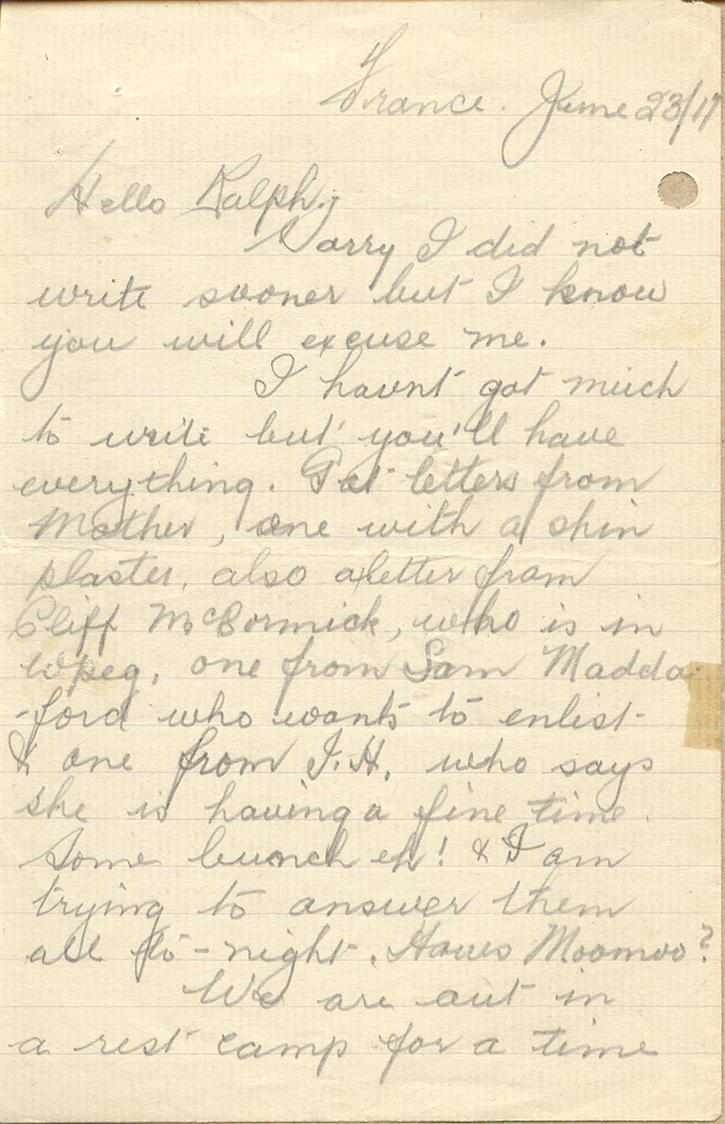 France. June 23/17
Hello Ralph;
Sorry I did not
write sooner but I know
you will excuse me.
I havnt got much
to write but you'll have
everything. Got letters from
Mother, one with a shin
plaster, also a letter from
Cliff McCormick, who is in
Wpeg, one from Sam Madda-
-ford who wants to enlist
& one from I.H. who says
she is having a fine time.
Some bunch eh! & I am
trying to answer them
all to-night. Hows Moomoo?
We are out in
a rest camp for a time